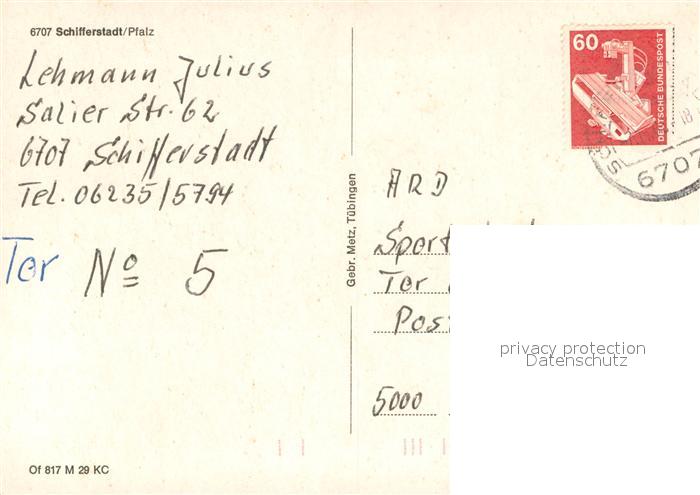 6707 Schifferstadt/Pfalz
Lehmann Julius
Salier Str. 62
6707 Schifferstadt
Tel. 06235/5794
Tor No 5
Of 817 M 29 KC
Gebr. Metz, Tübingen
60
DEUTSCHE BUNDESPOST
6707
ARD
Sport
Tor
Post
5000
privacy protection
Datenschutz